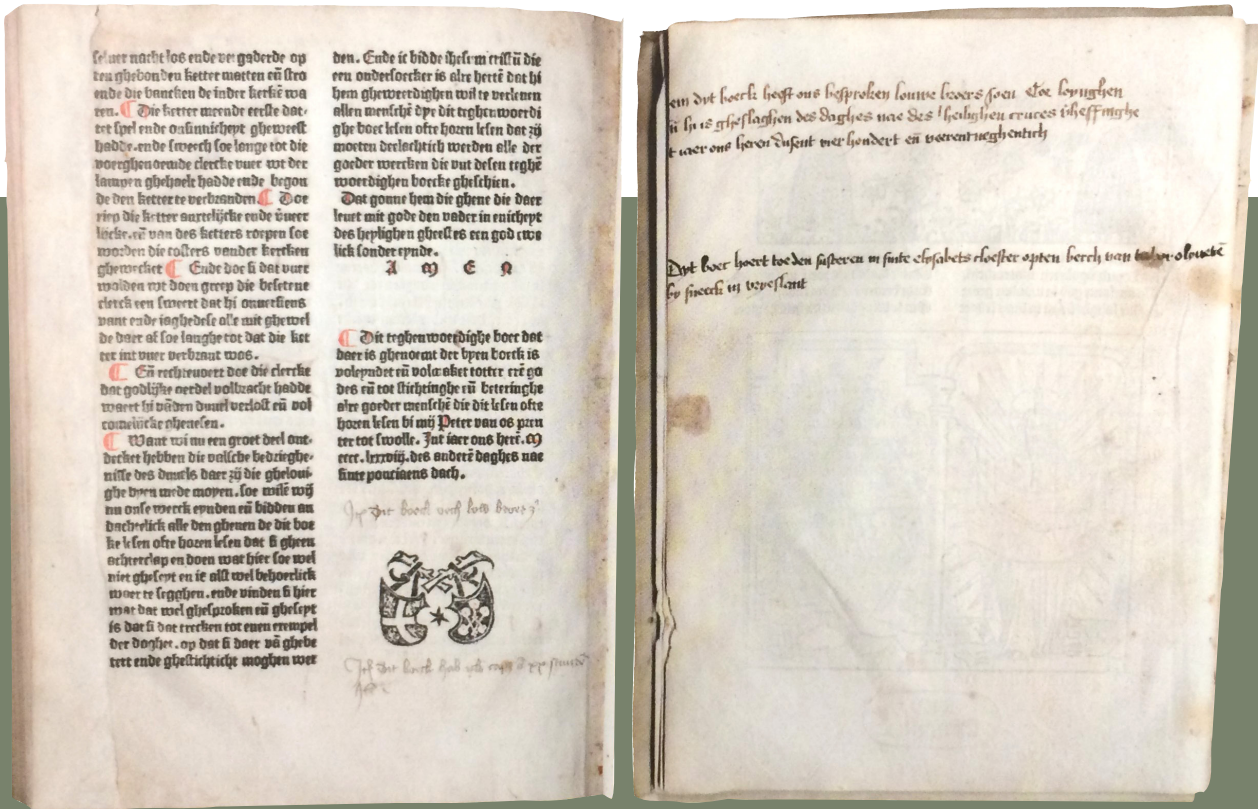 seluer nacht los ende vergaderde op
ten ghebonden ketter matten eñ stro
ende die bancken de inder kerkē wa
ren. ¶ Die ketter meende eerste dat-
tet spel ende onsinnicheyt gheweest
hadde. ende sweech soe lange tot die
voerghenoemde clercke vuer wt der
lampen ghehaelt hadde ende begon
de den ketter te verbranden ¶ Doe
riep die ketter aartelijcke ende
lijcke. eñ van des ketters roepen soe
worden die costers vander kercken
ghewecket ¶ Ende doe si dat vuer
wolden wt doen greep die besetene
clerck een sweert dat hi
vant ende iaghedese alle mit ghewel
de daer af soe langhe tot dat die ket
ter int vuer verbrant was.
¶ Eñ rechtevoert doe die clercke
dat godlijke oerdel volbracht hadde
waert hi vādeñ duuel verlost eñ vol
comelicke ghenesen.
¶ Want wi nu een groet deel ont-
decket hebben die valsche bedrieghe-
nisse des duuels daer zij die gheloui-
ghe byen mede moyen. soe willē wij
nu onse werck eynden eñ bidden an
dachtelick alle den ghenen de dit boe
ke lesen ofte horen lesen dat si gheen
achterclap en doen wat hier soe wel
niet gheseyt en is alst wel behoerlick
waer te segghen. ende vinden si hier
wat dat wel ghesproken eñ gheseyt
is dat si dat trecken tot enen exempel
der doghet. op dat si daer vā ghebe
tert ende ghestichticht moghen wer
den. Ende ic bidde ihesum cristū die
een ondersoecker is alre hertē dat hi
hem gheweerdighen wil te verlenen
allen menschē dye dit teghenwoerdi
ghe boec lesen ofte horen lesen dat zij
moeten deelachtich werden alle der
goeder wercken die vut desen teghē
woerdighen boecke gheschien.
Dat gonne hem die ghene die daer
leuet mit gode den vader in enicheyt
des heylighen gheestes een god ewe
lick sonder eynde.
A M E N
¶ Dit teghenwoerdighe boec dat
daer is ghenoemt der byen boeck is
voleyndet eñ volmaket totter eerē go
des eñ tot stichtinghe eñ beteringhe
alre goeder menschē die dit lesen ofte
horen lesen bi mij Peter van os pren
ter tot swolle. Int iaer ons herē. M
cccc. lxxxviij. des anderē daghes nae
sinte ponciaens dach.
dit boeck
dit boeck
em dyt boeck heeft ons besproken louwe beoers soen Toe
ñ hi is gheslaghen des daghes nae des heilighen cruces verheffinghe
t iaer ons heren dusent vier hondert eñ neghentich
Dyt boec hoert toe den susteren in sinte elysabets cloester opten berch van olyueten
by sneeck in vryeslant